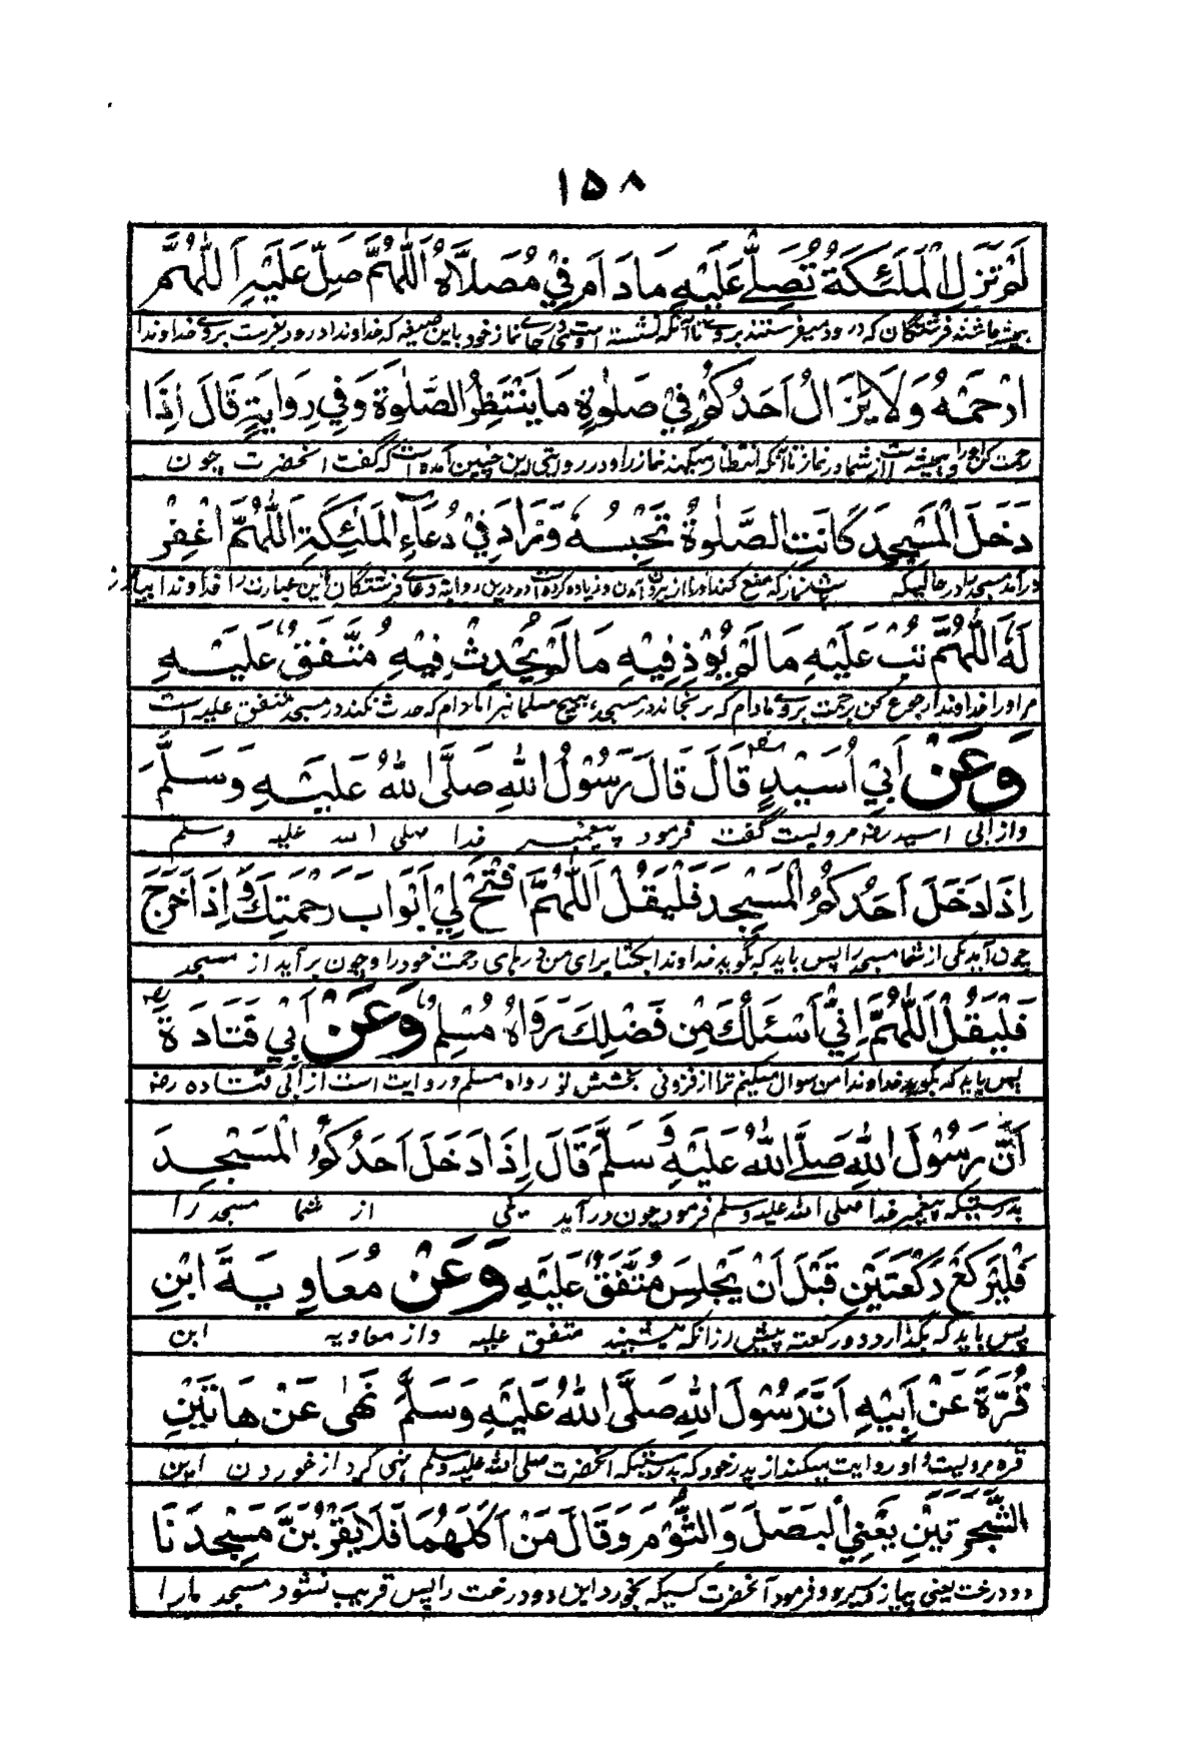 ۱۵۸
لَمْ تَزَلِ الْمَلٰئِكَةُ تُصَلِّے عَلَيْهِ مَا دَامَ فِيْ مُصَلَّاهُ اَللّٰهُمَّ صَلِّ عَلَيْهِ اَللّٰهُمَّ
همیشه باشند فرشتگان که درود میفرستند بروے تا آنکه نشسته است در جاے نماز خود باین صیغه که خداوندا درود بفرست بروے خداوندا
ارْحَمْهُ وَلَا يَزَالُ اَحَدُكُمْ فِيْ صَلٰوةٍ مَا يَنْتَظِرُ الصَّلٰوةَ وَفِيْ رِوَايَةٍ قَالَ اِذَا
رحمت کن اورا و همیشه است از شما در نماز تا آنکه انتظار میکند نماز را و در روایتی این چنین آمده است که گفت آنحضرت چون
دَخَلَ الْمَسْجِدَ كَانَتِ الصَّلٰوةُ تَحْبِسُهُ وَزَادَ فِيْ دُعَآءِ الْمَلٰئِكَةِ اَللّٰهُمَّ اغْفِرْ
درآمد مسجد را در حالیکه باشد نماز که منع کند او را از بیرون آمدن و زیاده کرده است در این روایة دعاے فرشتگان این عبارت را خداوندا بیامرز
لَهُ اَللّٰهُمَّ تُبْ عَلَيْهِ مَا لَمْ يُوْذِ فِيْهِ مَا لَمْ يُحْدِثْ فِيْهِ مُتَّفَقٌ عَلَيْهِ
مر او را خداوندا رجوع کن برحمت بروے مادام که نرنجاند در مسجد هیچ مسلمانیرا مادام که حدث نکند در مسجد متفق علیه است
وَعَنْ اَبِيْ اُسَيْدٍ قَالَ قَالَ رَسُوْلُ اللّٰهِ صَلَّى اللّٰهُ عَلَيْهِ وَسَلَّمَ
و از ابی اسید رضه مرویست گفت فرمود پیغمبر خدا صلی الله علیه وسلم
اِذَا دَخَلَ اَحَدُكُمُ الْمَسْجِدَ فَلْيَقُلْ اَللّٰهُمَّ افْتَحْ لِيْ اَبْوَابَ رَحْمَتِكَ وَاِذَا خَرَجَ
چون آید یکی از شما مسجد را پس باید که بگوید خداوندا بکشا برای من درهای رحمت خود را و چون برآید از مسجد
فَلْيَقُلْ اَللّٰهُمَّ اِنِّيْ اَسْئَلُكَ مِنْ فَضْلِكَ رَوَاهُ مُسْلِمٌ وَعَنْ اَبِيْ قَتَادَةَ رضه
پس باید که بگوید خداوندا من سوال میکنم ترا از فزونی بخشش تو رواه مسلم و روایت است از ابی قتاده رضه
اَنَّ رَسُوْلَ اللّٰهِ صَلَّے اللّٰهُ عَلَيْهِ وَسَلَّمَ قَالَ اِذَا دَخَلَ اَحَدُكُمُ الْمَسْجِدَ
بدرستیکه پیغمبر خدا صلی الله علیه وسلم فرمود چون درآید یکی از شما مسجد را
فَلْيَرْكَعْ رَكْعَتَيْنِ قَبْلَ اَنْ يَجْلِسَ مُتَّفَقٌ عَلَيْهِ وَعَنْ مُعَاوِيَةَ ابْنِ
پس باید که بگذارد دو رکعت پیش ازانکه بنشیند متفق علیه و از معاویه ابن
قُرَّةَ عَنْ اَبِيْهِ اَنَّ رَسُوْلَ اللّٰهِ صَلَّى اللّٰهُ عَلَيْهِ وَسَلَّمَ نَهٰى عَنْ هَاتَيْنِ
قره مرویست او روایت میکند از پدر خود که بدرستیکه آنحضرت صلی الله علیه وسلم نهی کرد از خوردن این
الشَّجَرَتَيْنِ يَعْنِي الْبَصَلَ وَالثُّوْمَ وَقَالَ مَنْ اَكَلَهُمَا فَلَا يَقْرُبَنَّ مَسْجِدَنَا
دو درخت یعنی پیاز و سیر و فرمود آنحضرت کسیکه بخورد این دو درخت را پس قریب نشود مسجد مارا